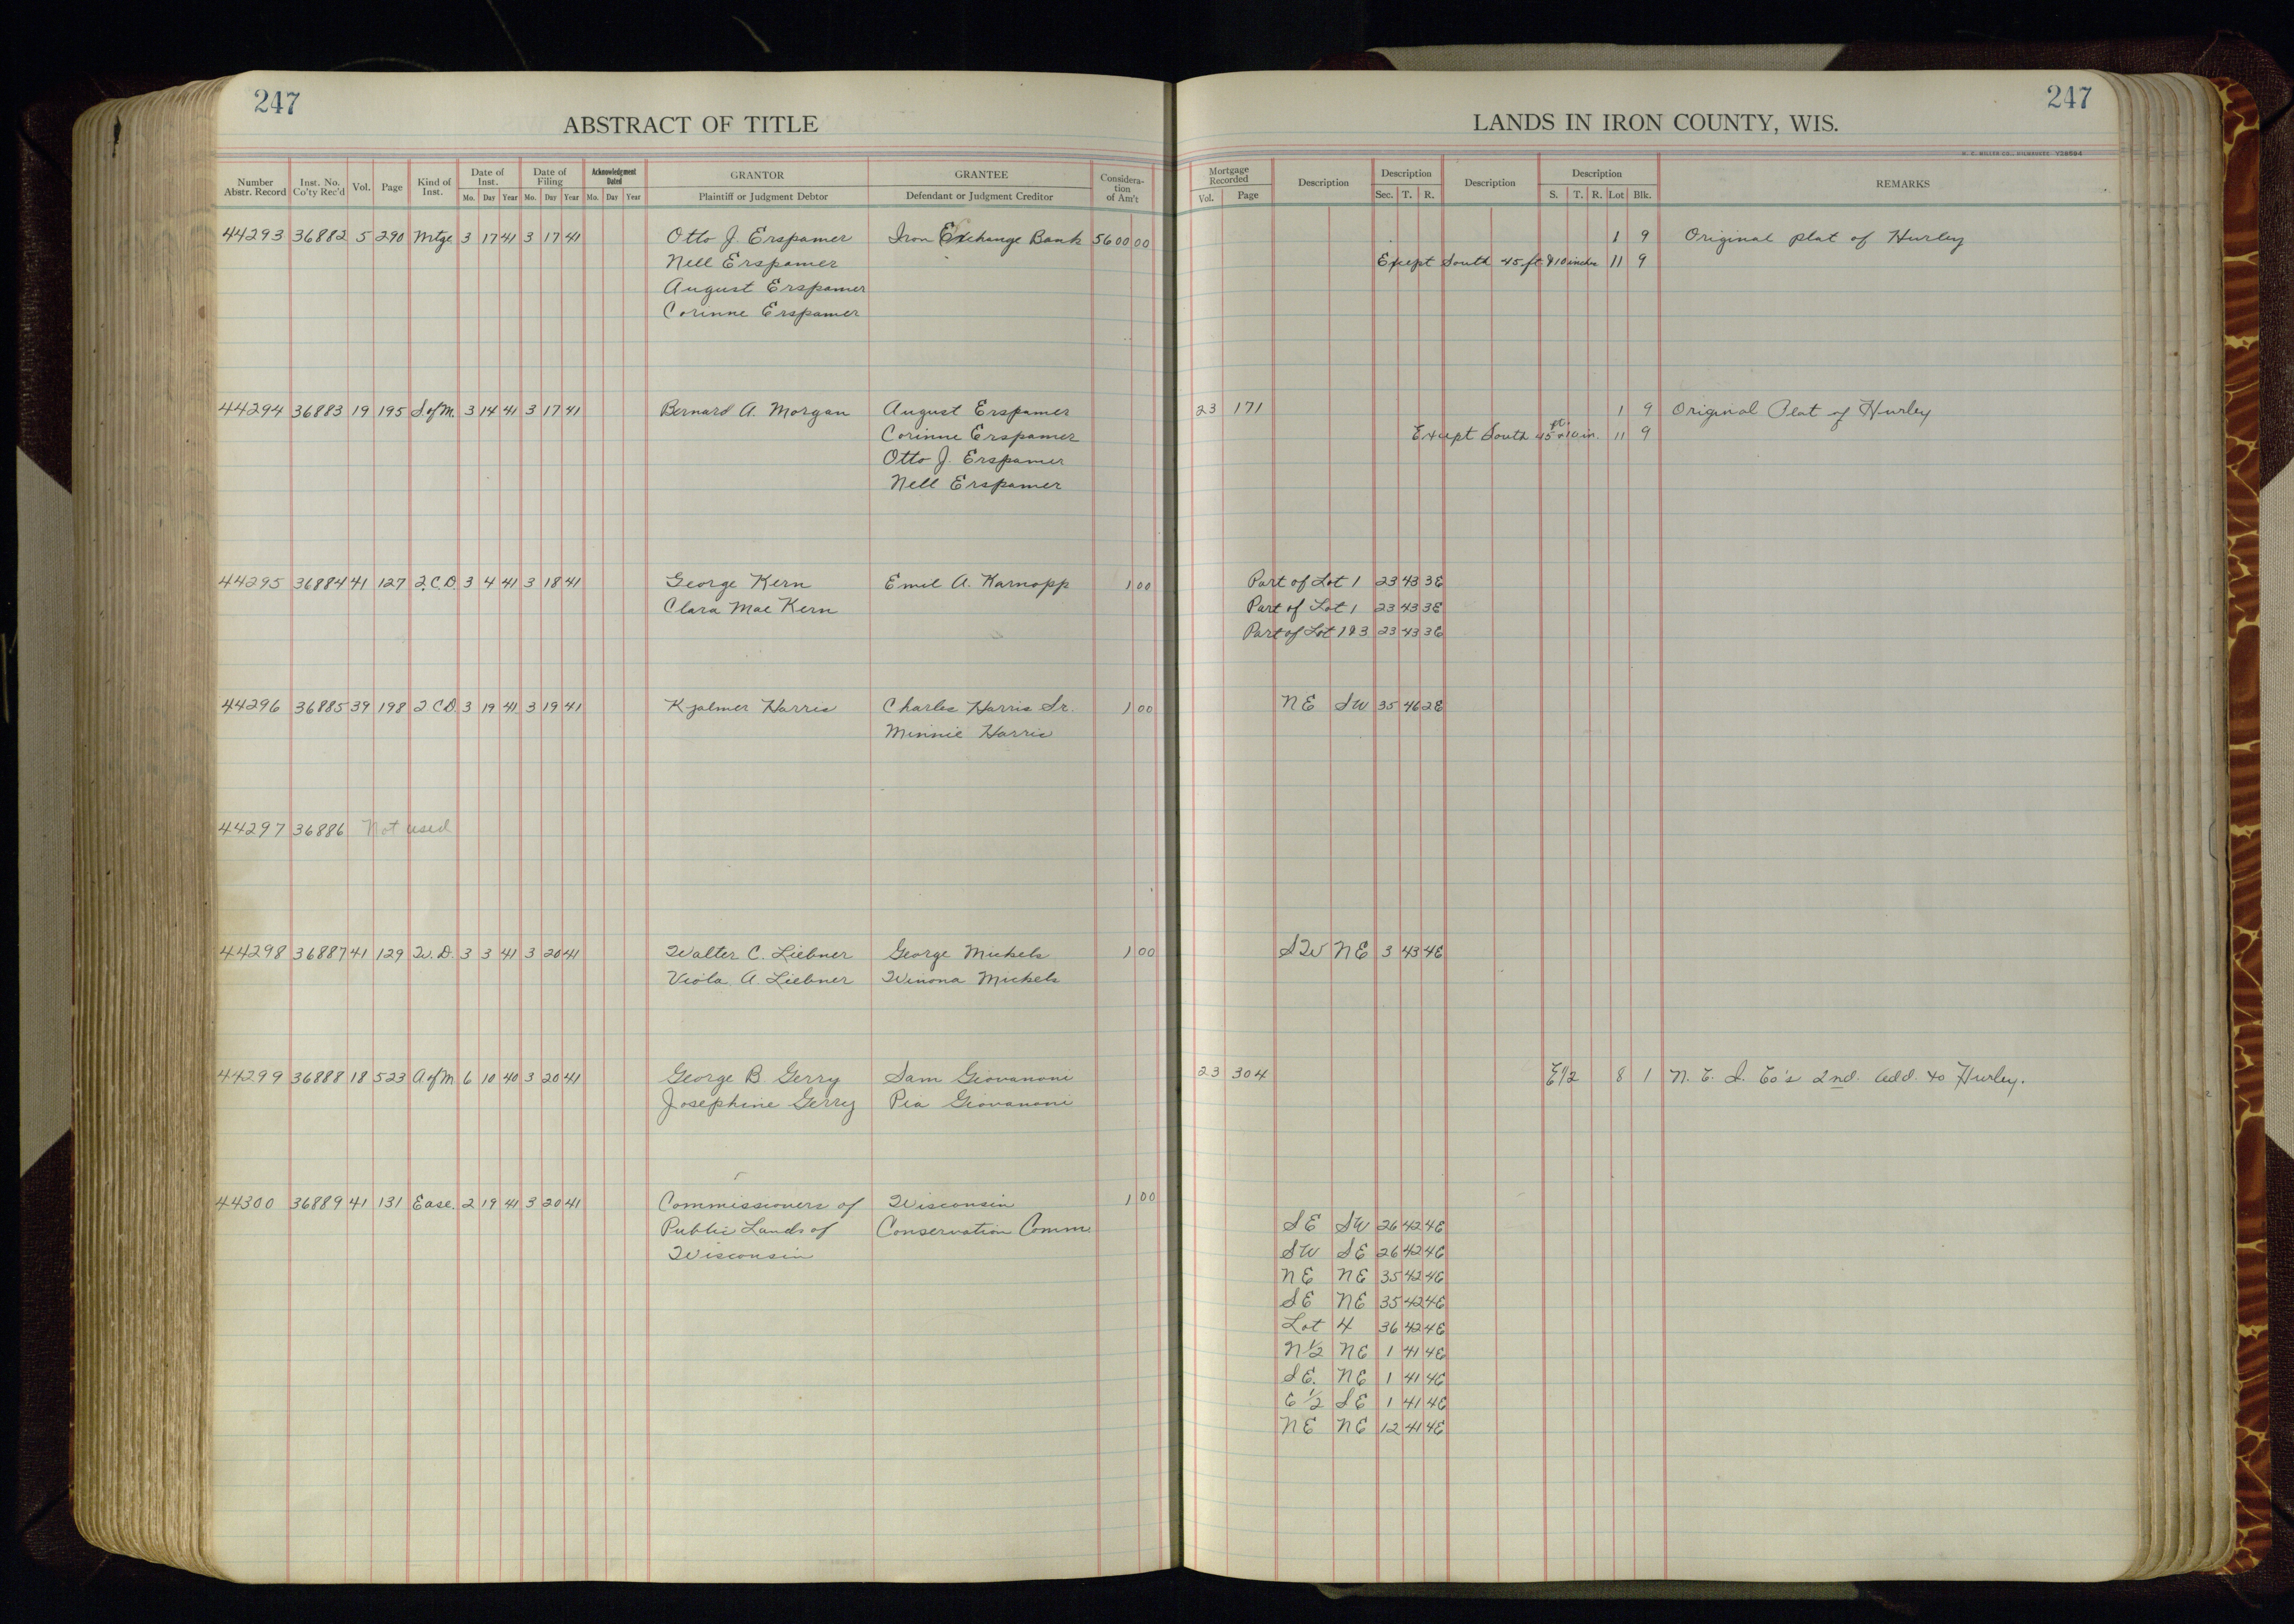 247
247
ABSTRACT OF TITLE
LANDS IN IRON COUNTY, WIS.
H. C. MILLER CO., MILWAUKEE Y38594
Number Abstr. Record Inst. No. Co'ty Rec'd Vol. Page Kind of Inst. Date of Inst. Mo. Day Year Date of Filing Mo. Day Year Acknowledgment Dated Mo. Day Year GRANTOR Plaintiff or Judgment Debtor GRANTEE Defendant or Judgment Creditor Considera-tion of Am't Mortgage Recorded Vol. Page Description Description Sec. T. R. Description Description S. T. R. Lot Blk. REMARKS
44293 36882 5 290 Mtge 3 17 41 3 17 41 Otto J. Erspamer Iron Exchange Bank 5600 00 1 9 Original plat of Hurley
Nell Erspamer Except South 45 ft & 10 inches 11 9
August Erspamer
Corinne Erspamer
44294 36883 19 195 S. of M. 3 14 41 3 17 41 Bernard A. Morgan August Erspamer 23 171 1 9 Original Plat of Hurley
Corinne Erspamer Except South 45 ft. & 10 in. 11 9
Otto J. Erspamer
Nell Erspamer
44295 36884 41 127 2.C.D. 3 4 41 3 18 41 George Kern Emil A. Karnopp 1 00 Part of Lot 1 23 43 3E
Clara Mae Kern Part of Lot 1 23 43 3E
Part of Lot 1 & 3 23 43 3E
44296 36885 39 198 2 C D. 3 19 41 3 19 41 Kjalmer Harris Charles Harris Sr. 1 00 NE SW 35 46 2E
Minnie Harris
44297 36886 Not used
44298 36887 41 129 W. D. 3 3 41 3 20 41 Walter C. Liebner George Mickels 1 00 SW NE 3 43 4E
Viola A. Liebner Winona Mickels
44299 36888 18 523 A of M 6 10 40 3 20 41 George B. Gerry Sam Giovanoni 23 304 E1/2 8 1 N. L. I. Co's 2nd. Add. to Hurley.
Josephine Gerry Pia Giovanoni
44300 36889 41 131 Ease. 2 19 41 3 20 41 Commissioners of Wisconsin 1 00
Public Lands of Conservation Comm. SE SW 26 42 4E
Wisconsin SW SE 26 42 4E
NE NE 35 42 4E
SE NE 35 42 4E
Lot 4 36 42 4E
N 1/2 NE 1 41 4E
SE. NE 1 41 4E
E 1/2 SE 1 41 4E
NE NE 12 41 4E